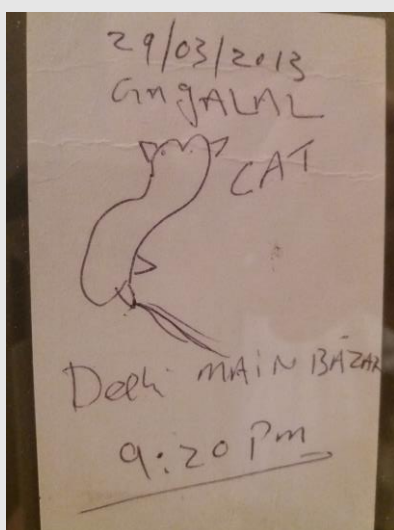 29/03/2013
GngALAL
CAT
Delhi MAIN BAZAR
9:20 Pm